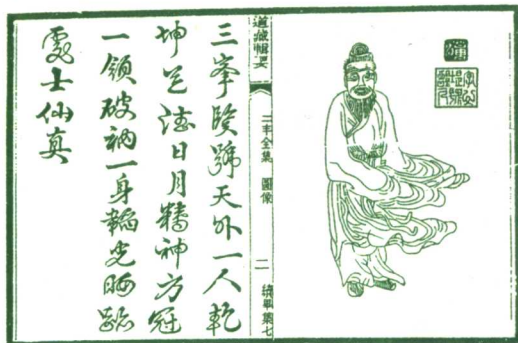 道藏輯要
三丰全集 圖像
二
畢集七
三峯號天外一人乾
坤道德日月精神方冠
一領破衲一身韜光晦跡
處士仙真